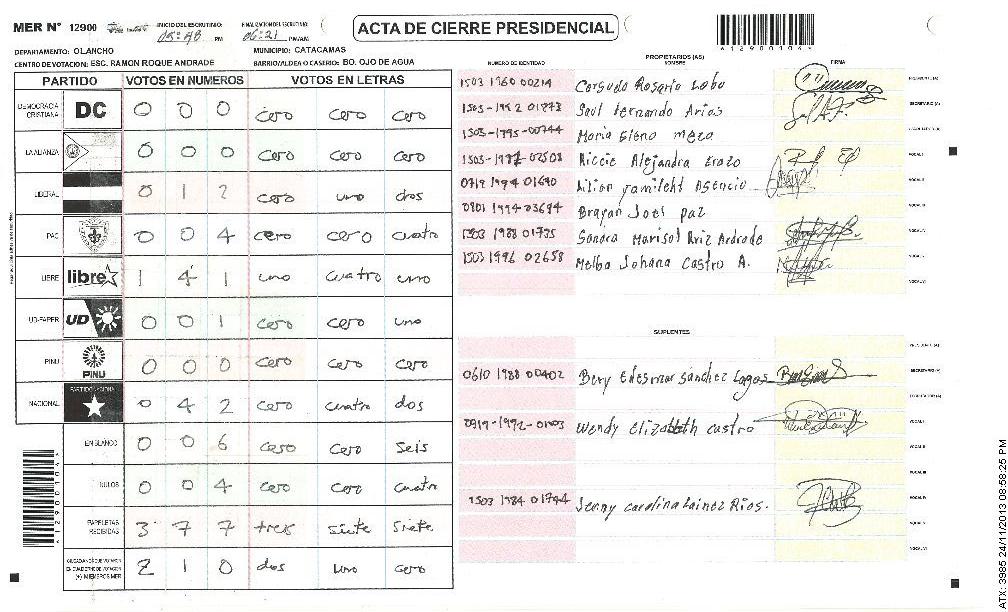 MER N° 12900
INICIO DEL ESCRUTINIO: 05:48 PM
FINALIZACION DEL ESCRUTINIO: 06:21 PM/AM
ACTA DE CIERRE PRESIDENCIAL
DEPARTAMENTO: OLANCHO
MUNICIPIO: CATACAMAS
CENTRO DE VOTACION: ESC. RAMON ROQUE ANDRADE
BARRIO/ALDEA O CASERIO: BO. OJO DE AGUA
PARTIDO VOTOS EN NUMEROS VOTOS EN LETRAS
DEMOCRACIA CRISTIANA DC 0 0 0 cero cero cero
LA ALIANZA 0 0 0 cero cero cero
LIBERAL 0 1 2 cero uno dos
PAC 0 0 4 cero cero cuatro
LIBRE libre 1 4 1 uno cuatro uno
UD-FAPER UD 0 0 1 cero cero uno
PINU PINU 0 0 0 cero cero cero
NACIONAL PARTIDO NACIONAL 0 4 2 cero cuatro dos
EN BLANCO 0 0 6 cero cero seis
NULOS 0 0 4 cero cero cuatro
PAPELETAS RECIBIDAS 3 7 7 tres siete siete
CIUDADANOS QUE VOTARON EN CUADERNO DE VOTACION (+) MIEMBROS MER 2 1 0 dos uno cero
PROPIETARIOS (AS)
NUMERO DE IDENTIDAD NOMBRE FIRMA
1503 1960 00214 Rosario Lobo
Saul Fernando Arias
1503-1995-00744 Maria Elena meza
Alejandra Erazo
0719 1994 01690 Lilian Yamileht Asencio
0801 1994-03694 Brayan Joel paz
1503 1988 01735 Sandra Marisol Ruiz Andrade
1503 1996 02658 Melba Johana Castro A.
SUPLENTES
0610 1988 00402 Bery Sanchez Lagos
Wendy Elizabeth castro
1503 1984 01744 Jenny carolina Lainez Rios.
ATX: 3985 24/11/2013 08:58:25 PM